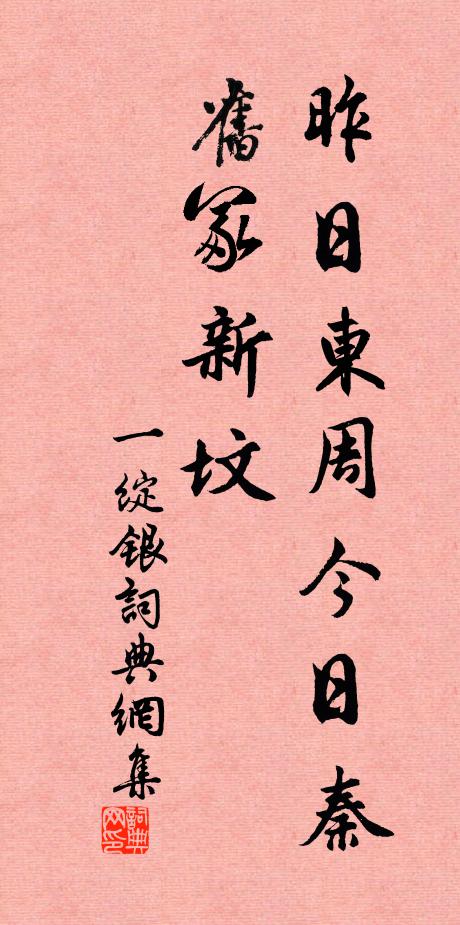 昨日東周今日秦
舊冢新墳
一綻銀詞典網集
詞典
网印